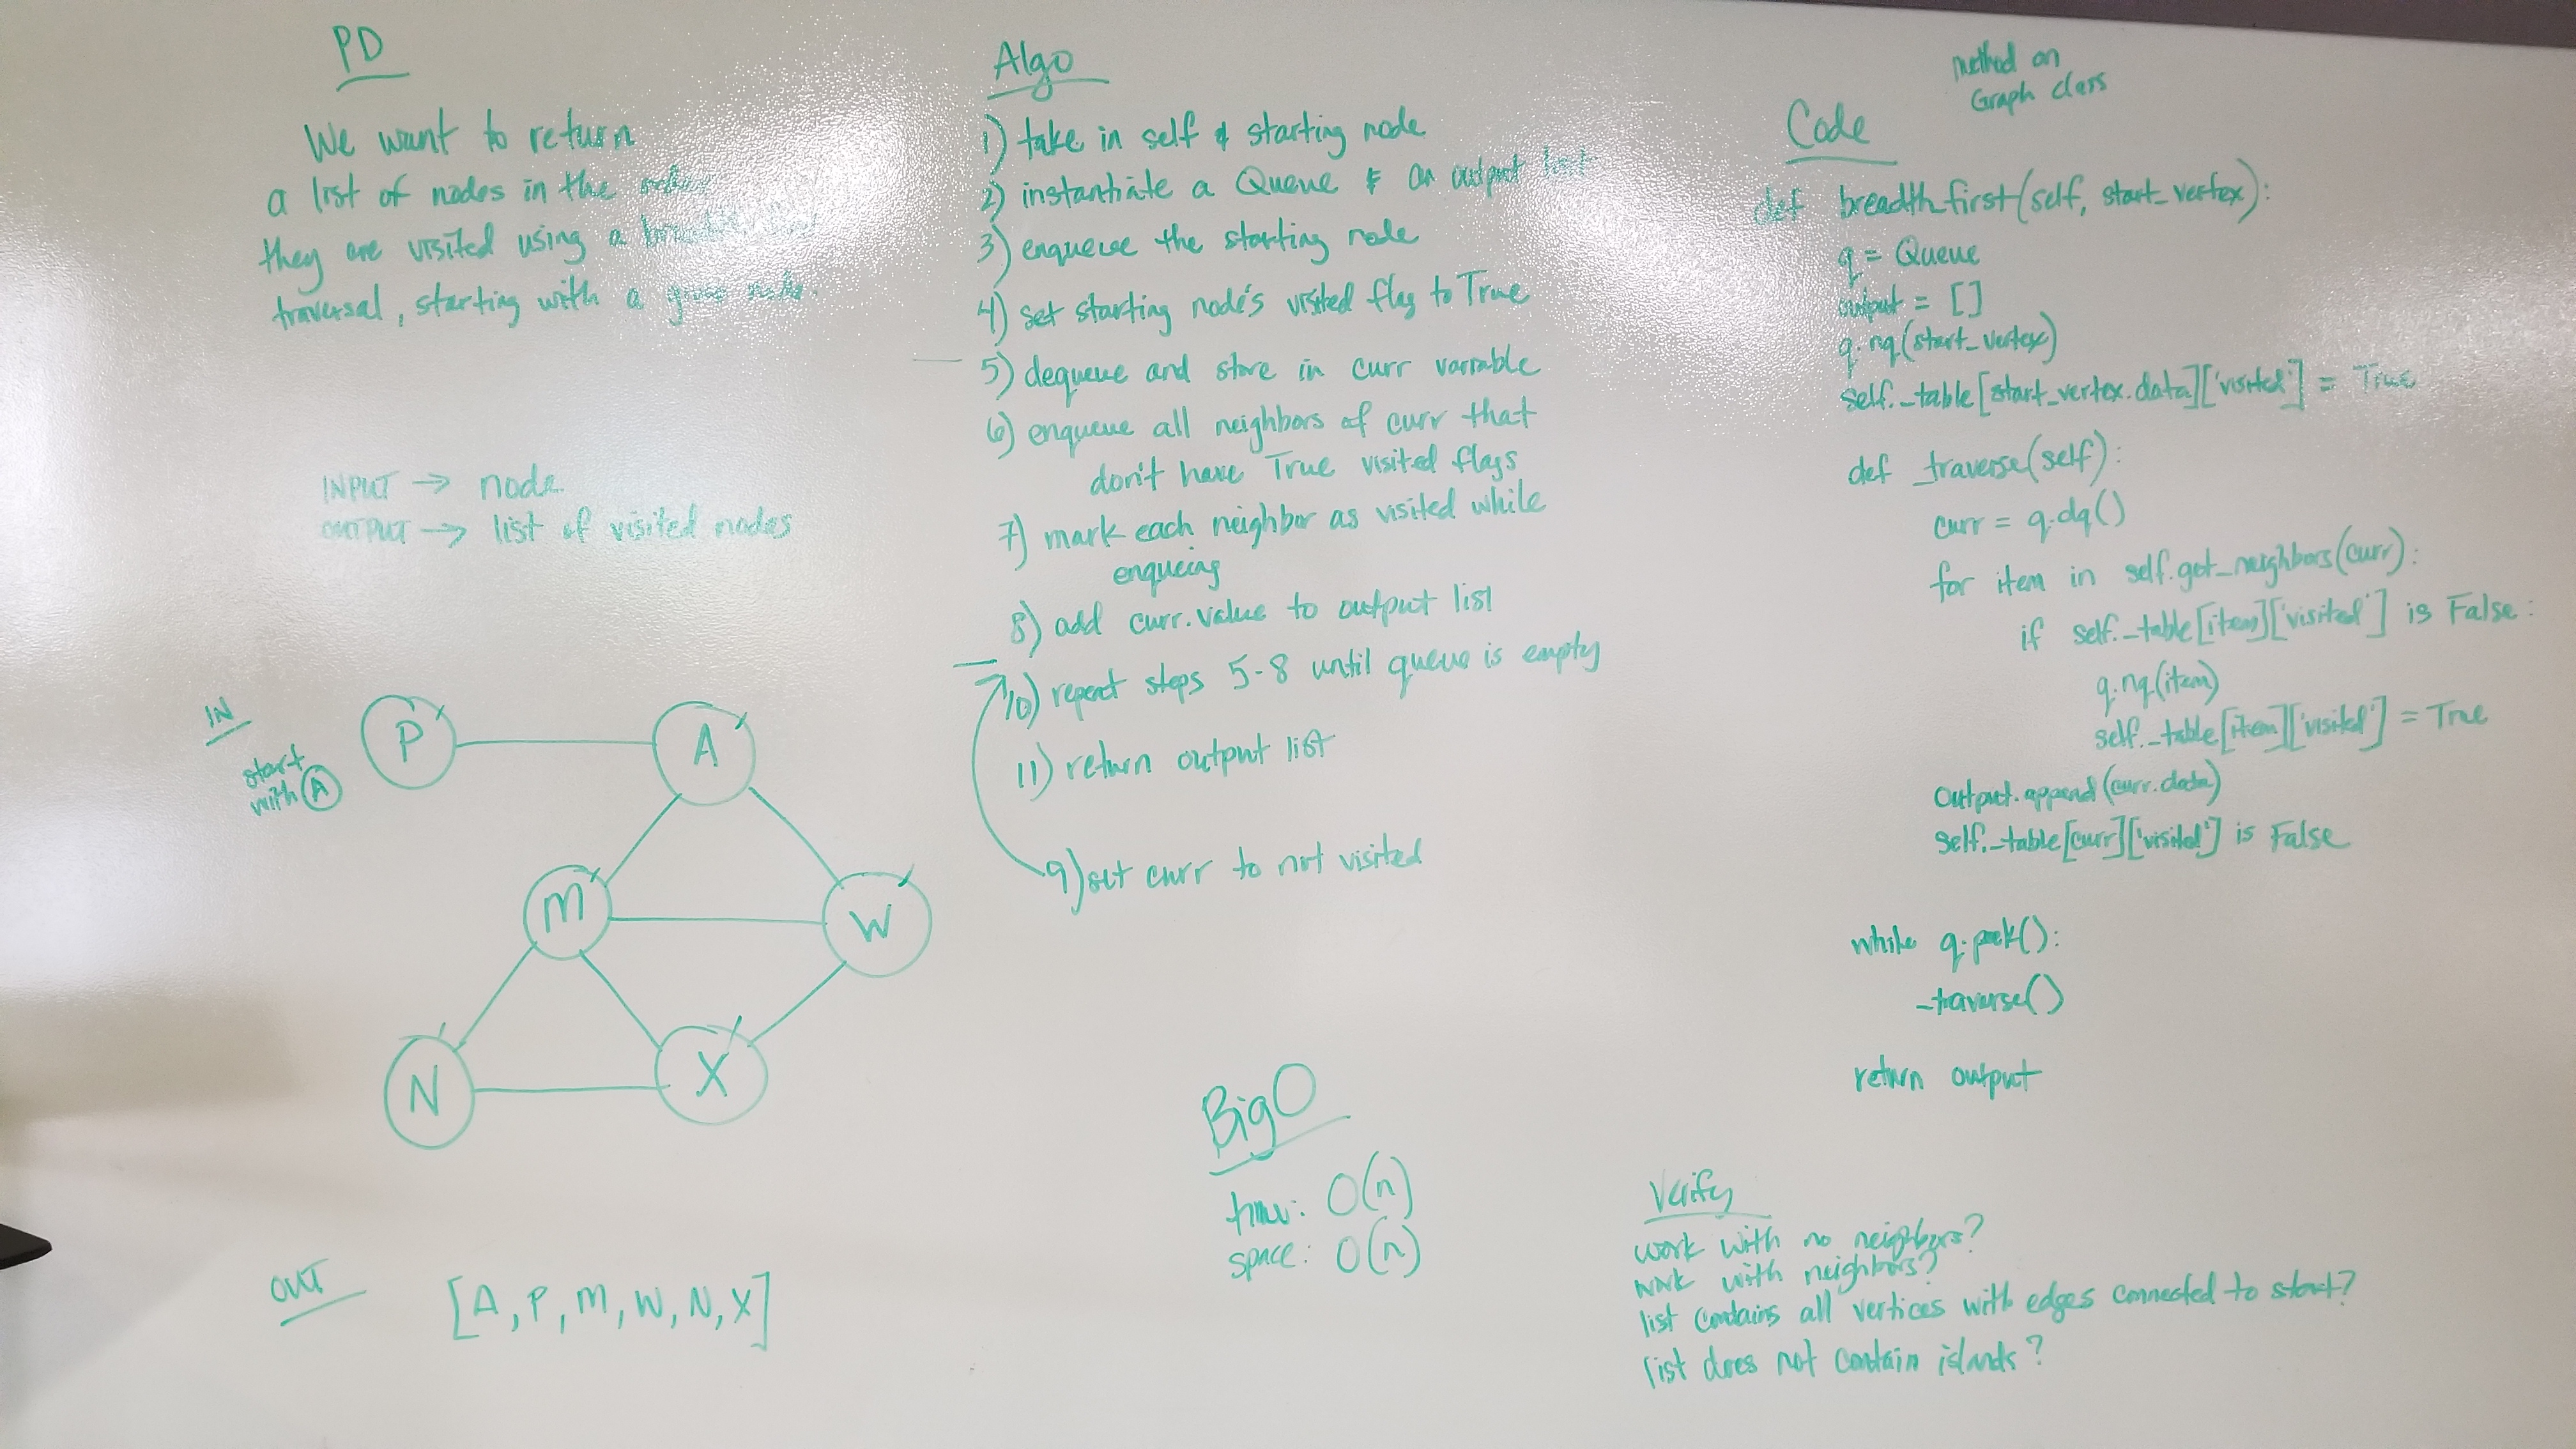 PD
We want to return
a list of nodes in the order
they are visited using a
traversal, starting with a given node.
INPUT → node
OUTPUT → list of visited nodes
IN
start
with A
P
A
M
W
N
X
OUT
[A, P, M, W, N, X]
Algo
1) take in self & starting node
2) instantiate a Queue & an output list
3) enqueue the starting node
4) set starting node's visited flag to True
5) dequeue and store in curr variable
6) enqueue all neighbors of curr that
don't have True visited flags
7) mark each neighbor as visited while
enqueing
8) add curr.value to output list
10) repeat steps 5-8 until queue is empty
11) return output list
9) set curr to not visited
Big O
time: O(n)
space: O(n)
method on
Graph class
Code
def breadth_first(self, start_vertex):
q = Queue
output = []
q.nq(start_vertex)
self._table[start_vertex.data]['visited'] = True
def _traverse(self):
curr = q.dq()
for item in self.get_neighbors(curr):
if self._table[item]['visited'] is False:
q.nq(item)
self._table[item]['visited'] = True
output.append(curr.data)
self._table[curr]['visited'] is False
while q.peek():
_traverse()
return output
Verify
work with no neighbors?
work with neighbors?
list contains all vertices with edges connected to start?
list does not contain islands?